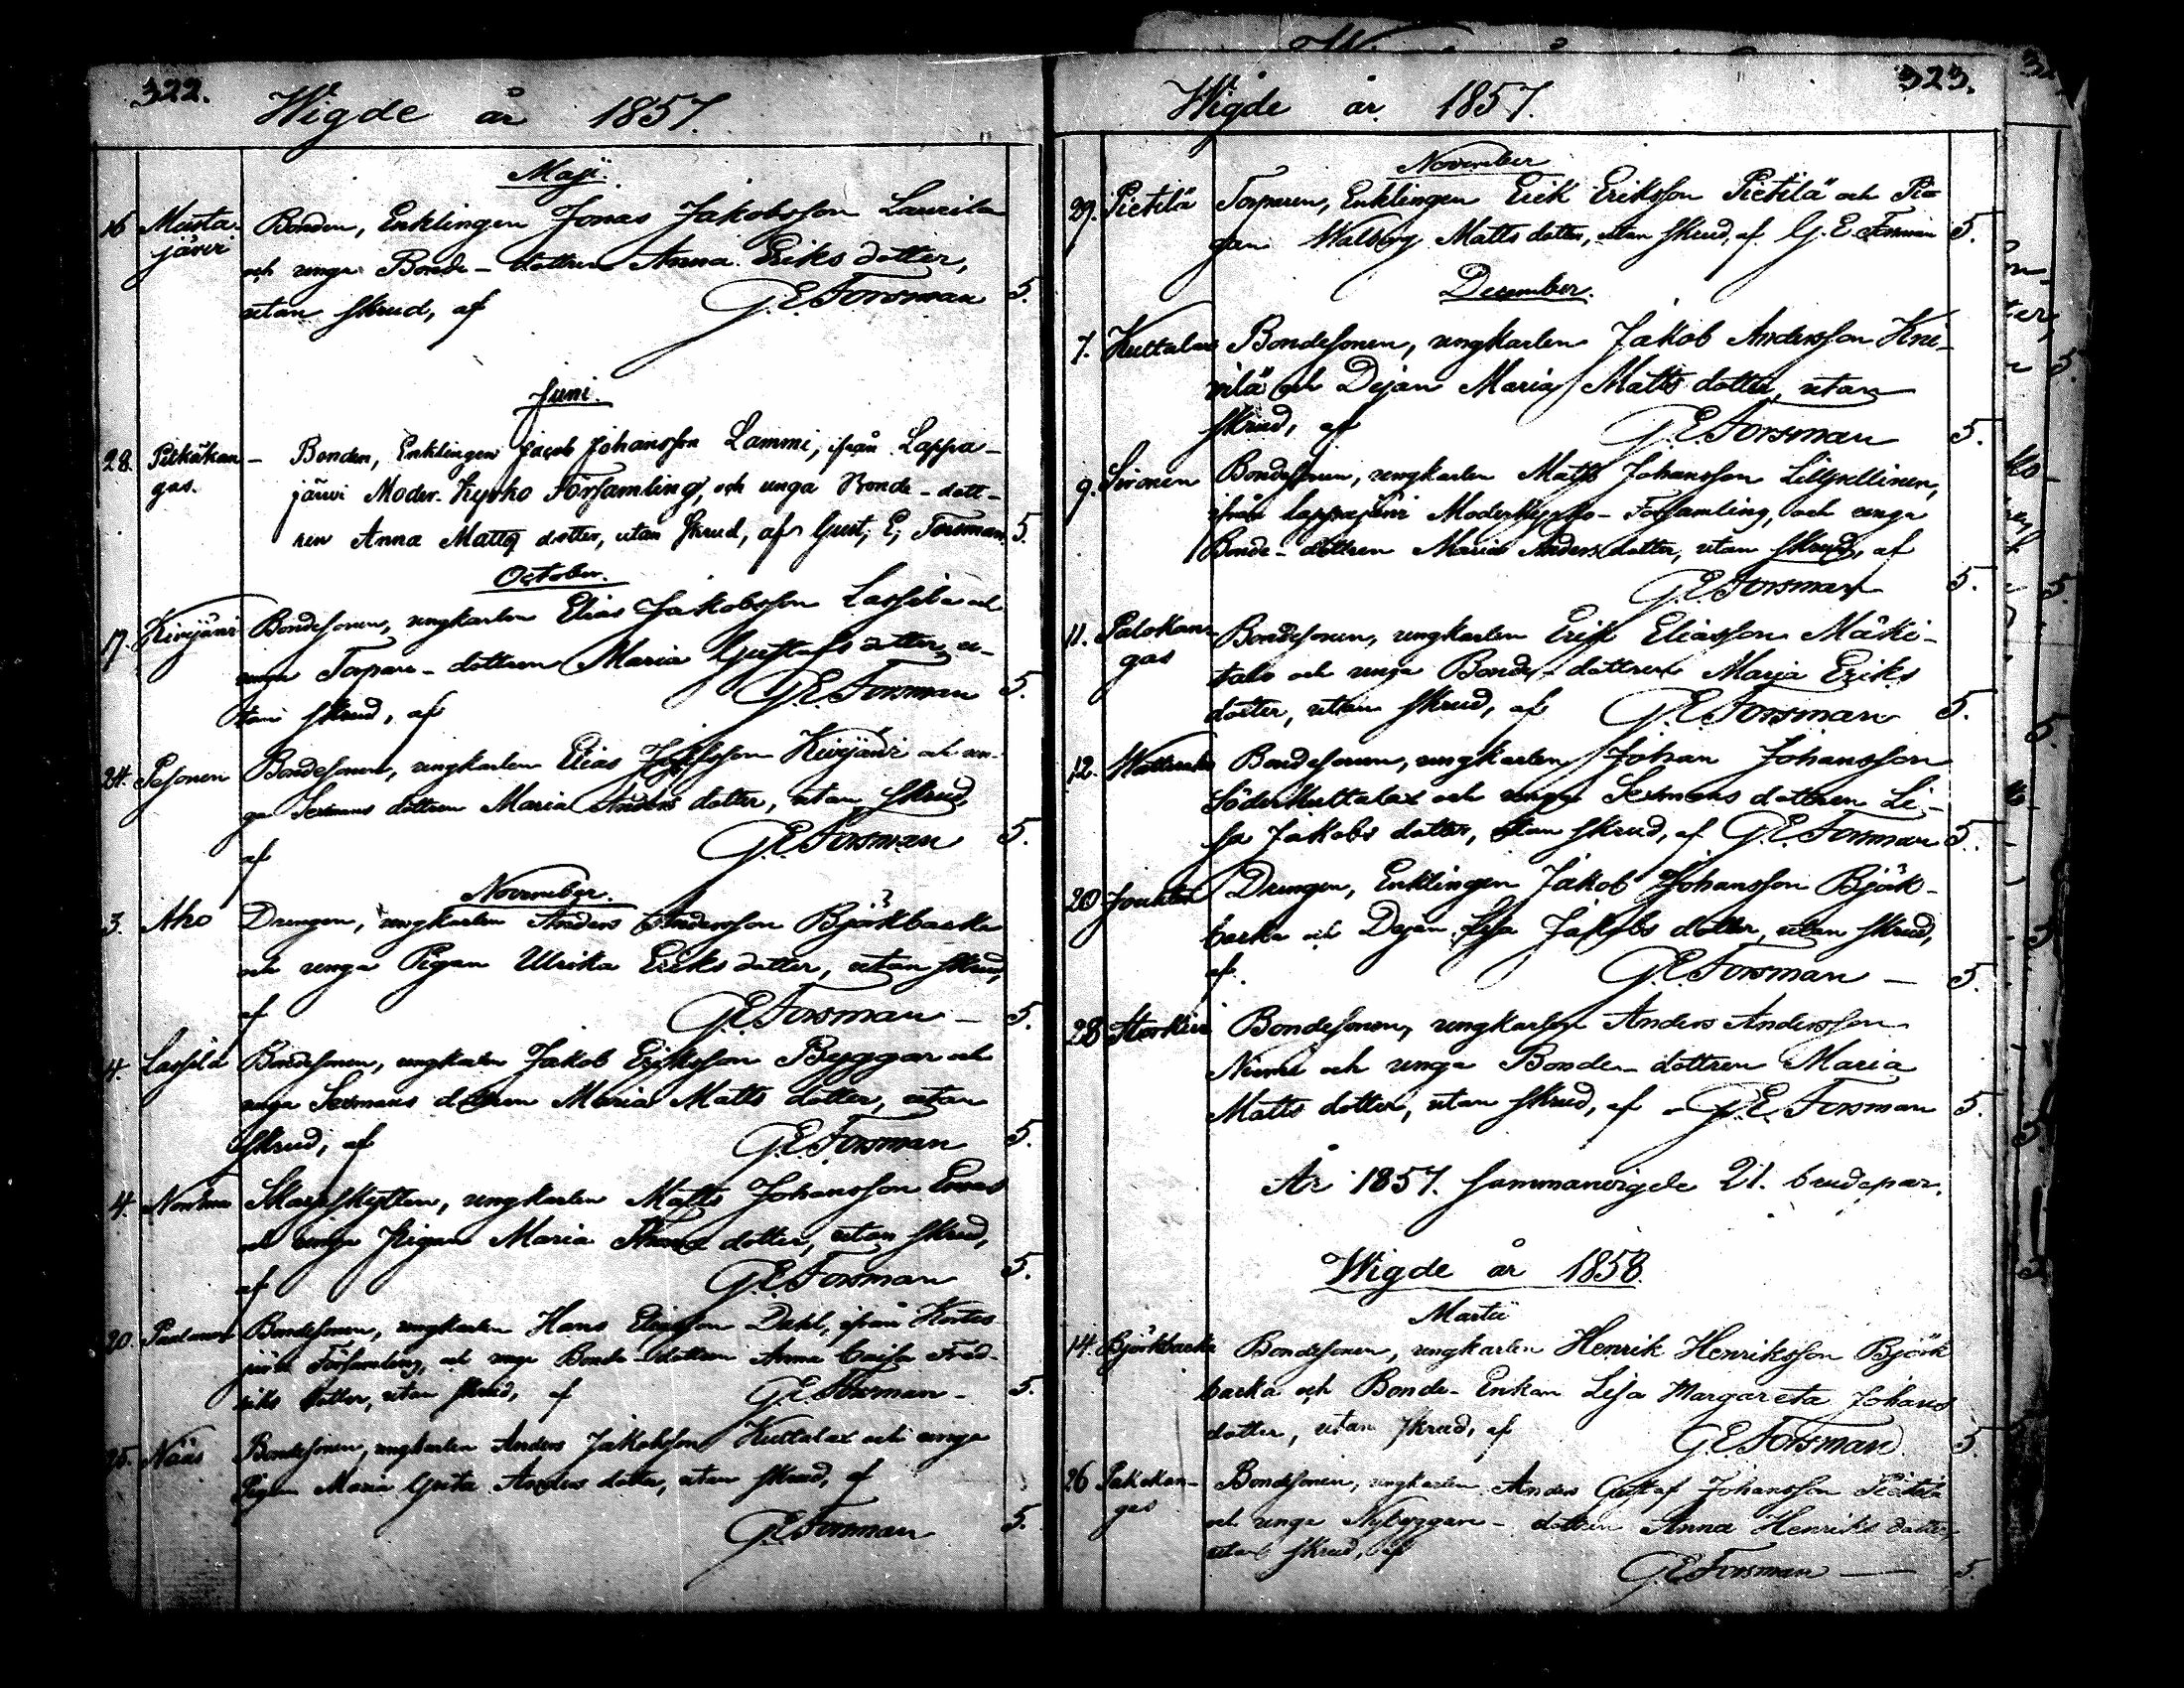 322.
Wigde år 1857.
Maji.
16 Masta-
järvi
Bonden, Enklingen Jonas Jakobsson Laurila
och unga Bonde-dottren Anna Eriks dotter,
utan skrud, af G.E. Forsman 5.
Juni.
28. Pitkäkan-
gas.
Bonden, Enklingen Jacob Johansson Lammi, ifrån Lappa-
järvi Moder-Kyrko Församling, och unga Bonde-dott-
ren Anna Matts dotter, utan skrud, af Gust. E. Forsman 5.
October.
17. Kivijärvi Bondesonen, ungkarlen Elias Jakobsson Lassila och
unga Torpare-dottren Maria Gustafs dotter, u-
tan skrud, af G.E. Forsman 5.
24. Pesonen Bondesonen, ungkarlen Elias Josefsson Kivijärvi och un-
ga Sexmans dottren Maria Anders dotter, utan skrud,
af G.E. Forsman 5.
November.
3. Aho Drengen, ungkarlen Anders Andersson Björkbacka
och unga Pigan Ulrika Eriks dotter, utan skrud,
af G.E. Forsman 5.
4. Lassila Bondesonen, ungkarlen Jakob Eriksson Byggar och
unga Sexmans dottren Maria Matts dotter, utan
skrud, af G.E. Forsman 5.
4. ungkarlen Matts Johansson
och unga Pigan Maria dotter, utan skrud,
af G.E. Forsman 5.
20. Bondesonen, ungkarlen Hans Eliasson Dahl, ifrån Kortes
järvi Församling, och unga Bonde-dottren Anna Caisa Fred-
riks dotter, utan skrud, af G.E. Forsman 5.
25. Näás Bondesonen, ungkarlen Anders Jakobsson Kuttalax och unga
Pigan Maria Greta Anders dotter, utan skrud, af
G.E. Forsman 5.
323.
Wigde år 1857.
November
29. Pietilä Torparen, Enklingen Erik Eriksson Pietilä och Pi-
gan Walborg Matts dotter, utan skrud, af G.E. Forsman 5.
December.
7. Kuttalax Bondesonen, ungkarlen Jakob Andersson Kni-
vilä och Dejan Maria Matts dotter, utan
skrud, af G.E. Forsman 5.
9. Sironen Bondesonen, ungkarlen Matts Johansson Lillpellinen,
ifrån Lappajärvi Moderkyrko-Församling, och unga
Bonde-dottren Maria Anders dotter, utan skrud, af
G.E. Forsman 5.
11. Palokan-
gas
Bondesonen, ungkarlen Erik Eliasson Mäki-
talo och unga Bonde-dottren Maja Eriks
dotter, utan skrud, af G.E. Forsman 5.
12. Bondesonen, ungkarlen Johan Johansson
Söderkuttalax och unga Sexmans dottren Li-
sa Jakobs dotter, utan skrud, af G.E. Forsman 5.
20 Drengen, Enklingen Jakob Johansson Björk-
backa och Dejan Lisa Jakobs dotter, utan skrud,
af. G.E. Forsman 5.
28 Bondesonen, ungkarlen Anders Andersson
och unga Bonde-dottren Maria
Matts dotter, utan skrud, af G.E. Forsman 5.
År 1857. sammanvigde 21. brudepar.
Wigde år 1858.
Martii
14. Björkbacka Bondesonen, ungkarlen Henrik Henriksson Björk
backa och Bonde-Enkan Lisa Margareta Johans
dotter, utan skrud, af G.E. Forsman 5.
26 gas
Bondesonen, ungkarlen Anders Gustaf Johansson Pietilä
och unga Nybyggare-dottren Anna Henriks dotter,
utan skrud, af
G.E. Forsman 5.